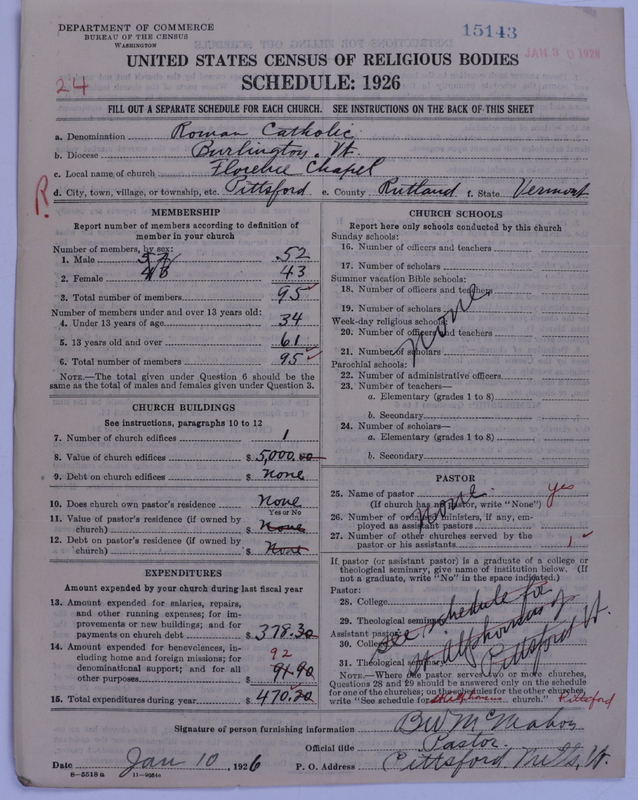 DEPARTMENT OF COMMERCE
BUREAU OF THE CENSUS
WASHINGTON
15143
JAN 30 1926
UNITED STATES CENSUS OF RELIGIOUS BODIES
SCHEDULE: 1926
24
FILL OUT A SEPARATE SCHEDULE FOR EACH CHURCH. SEE INSTRUCTIONS ON THE BACK OF THIS SHEET
a. Denomination Roman Catholic
b. Diocese Burlington, Vt.
c. Local name of church Florence Chapel
R
d. City, town, village, or township, etc. Pittsford e. County Rutland f. State Vermont
MEMBERSHIP
Report number of members according to definition of member in your church
Number of members, by sex:
1. Male 52
2. Female 43
3. Total number of members 95
Number of members under and over 13 years old:
4. Under 13 years of age 34
5. 13 years old and over 61
6. Total number of members 95
NOTE.—The total given under Question 6 should be the same as the total of males and females given under Question 3.
CHURCH BUILDINGS
See instructions, paragraphs 10 to 12
7. Number of church edifices 1
8. Value of church edifices $ 5,000.00
9. Debt on church edifices $ none
10. Does church own pastor's residence None
Yes or No
11. Value of pastor's residence (if owned by church) $ None
12. Debt on pastor's residence (if owned by church) $ None
EXPENDITURES
Amount expended by your church during last fiscal year
13. Amount expended for salaries, repairs, and other running expenses; for improvements or new buildings; and for payments on church debt $ 378.30
14. Amount expended for benevolences, including home and foreign missions; for denominational support; and for all other purposes $ 91.90
92
15. Total expenditures during year $ 470.20
CHURCH SCHOOLS
Report here only schools conducted by this church
Sunday schools:
16. Number of officers and teachers
17. Number of scholars
Summer vacation Bible schools:
18. Number of officers and teachers
19. Number of scholars
Week-day religious schools:
20. Number of officers and teachers
21. Number of scholars
Parochial schools:
22. Number of administrative officers
23. Number of teachers—
a. Elementary (grades 1 to 8)
b. Secondary
24. Number of scholars—
a. Elementary (grades 1 to 8)
b. Secondary
None
PASTOR
25. Name of pastor yes
(If church has no pastor, write "None")
26. Number of ordained ministers, if any, employed as assistant pastors
27. Number of other churches served by the pastor or his assistants 1
none
If pastor (or assistant pastor) is a graduate of a college or theological seminary, give name of institution below. (If not a graduate, write "No" in the space indicated.)
Pastor:
28. College
29. Theological seminary
Assistant pastor:
30. College
31. Theological seminary
See schedule for
St Alphonsus of
Pittsford Vt.
NOTE.—Where one pastor serves two or more churches, Questions 28 and 29 should be answered only on the schedule for one of the churches; on the schedules for the other churches, write "See schedule for St Alphonsus church." Pittsford
Signature of person furnishing information B W McMahon
Official title Pastor
Date Jan 10, 1926 P. O. Address Pittsford Mills, Vt.
8—5518 a 11—9554